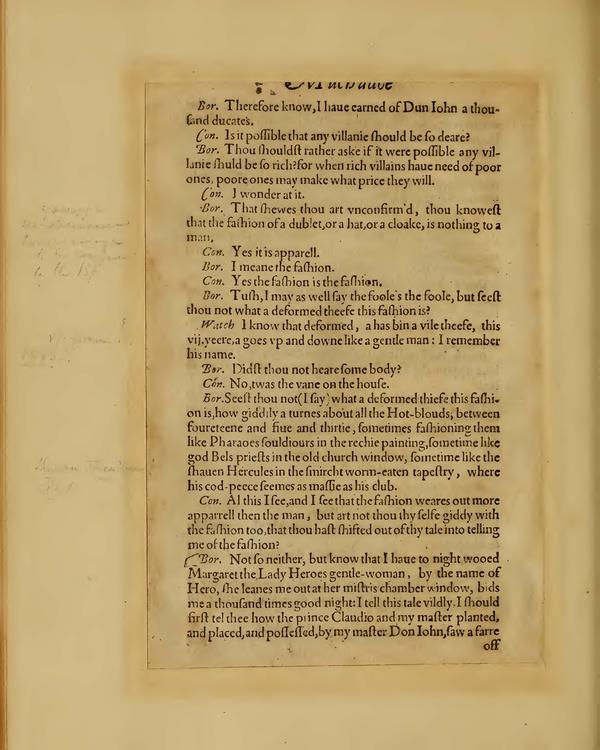 Bor. Therefore know,I haue earned of Dun Iohn a thou-
ſand ducates.
Con. Is it poſſible that any villanie ſhould be ſo deare?
Bor. Thou ſhouldſt rather aske if it were poſſible any vil-
lanie ſhuld be ſo rich?for when rich villains haue need of poor
ones, poore ones may make what price they will.
Con. I wonder at it.
Bor. That ſhewes thou art vnconfirm'd, thou knoweſt
that the faſhion of a dublet,or a hat,or a cloake, is nothing to a
man.
Con. Yes it is apparell.
Bor. I meane the faſhion.
Con. Yes the faſhion is the faſhion.
Bor. Tuſh,I may as well ſay the foole's the foole, but ſeeſt
thou not what a deformed theefe this faſhion is?
Watch I know that deformed, a has bin a vile theefe, this
vij.yeere,a goes vp and downe like a gentle man : I remember
his name.
Bor. Didſt thou not heare ſome body?
Con. No,twas the vane on the houſe.
Bor.Seeſt thou not(I ſay)what a deformed thiefe this faſhi-
on is,how giddily a turnes about all the Hot-blouds, between
foureteene and fiue and thirtie, ſometimes faſhioning them
like Pharaoes ſouldiours in the rechie painting,ſometime like
god Bels prieſts in the old church window, ſometime like the
ſhauen Hercules in the ſmircht worm-eaten tapeſtry, where
his cod-peece ſeemes as maſſie as his club.
Con. Al this I ſee,and I ſee that the faſhion weares out more
apparrell then the man, but art not thou thy ſelfe giddy with
the faſhion too,that thou haſt ſhifted out of thy tale into telling
me of the faſhion?
Bor. Not ſo neither, but know that I haue to night wooed
Margaret the Lady Heroes gentle-woman, by the name of
Hero, ſhe leanes me out at her miſtris chamber window, bids
me a thouſand times good night: I tell this tale vildly. I ſhould
firſt tel thee how the prince Claudio and my maſter planted,
and placed,and poſſeſſed,by my maſter Don Iohn,ſaw a farre
off